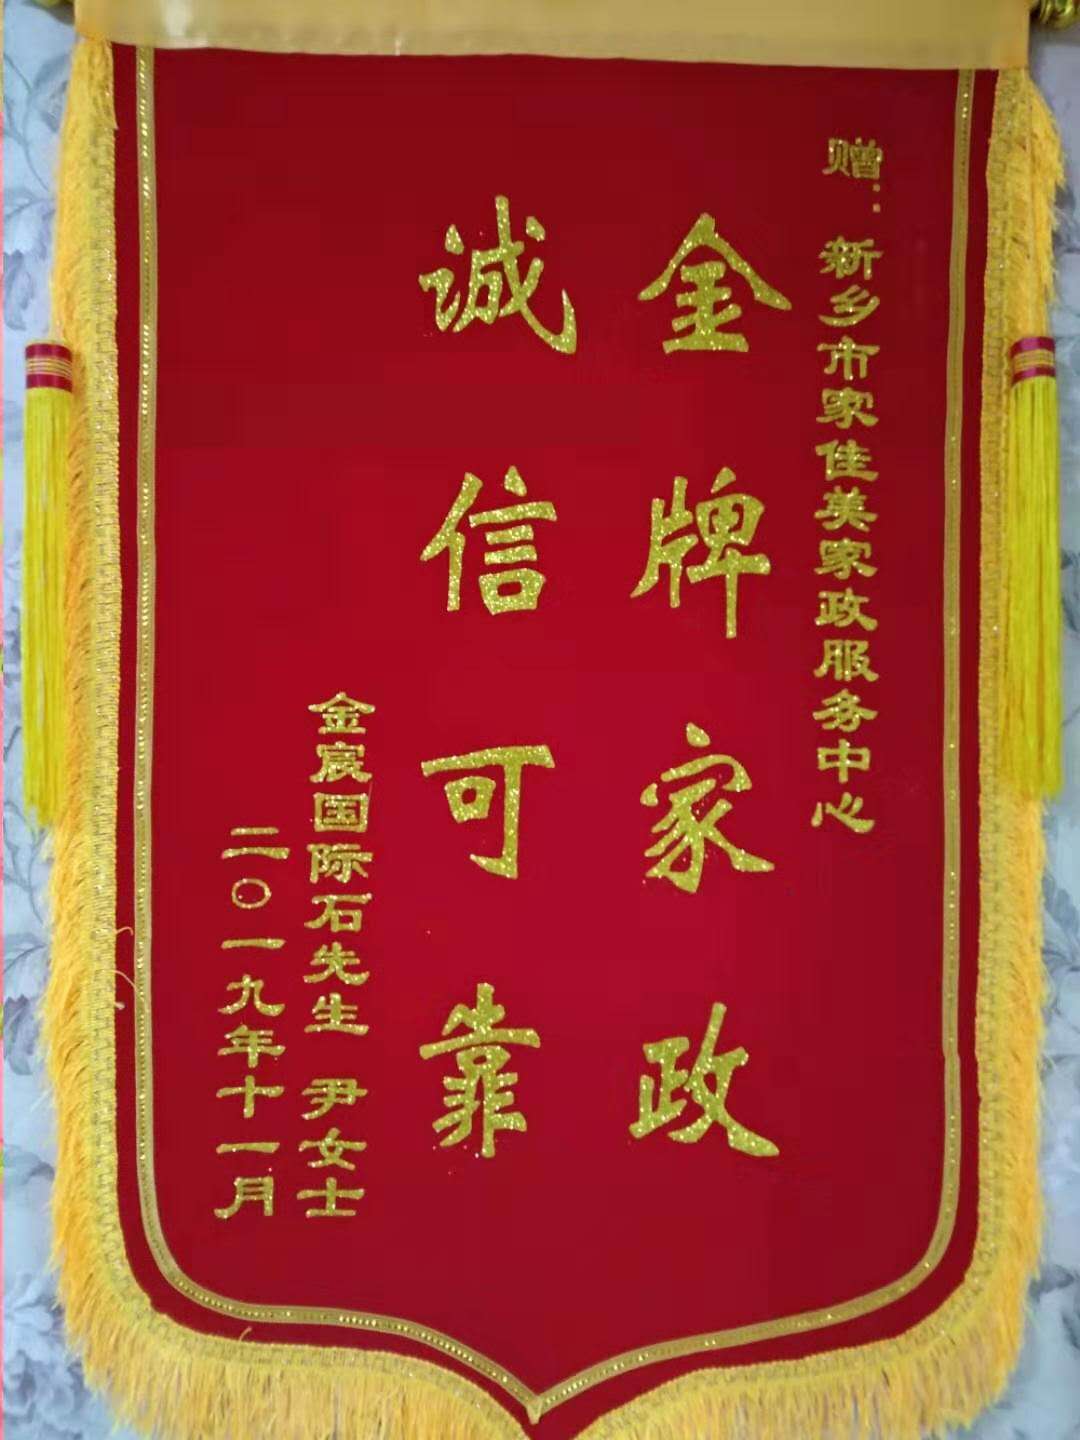 赠：新乡市家佳美家政服务中心
金牌家政
诚信可靠
金宸国际石先生 尹女士
二〇一九年十一月